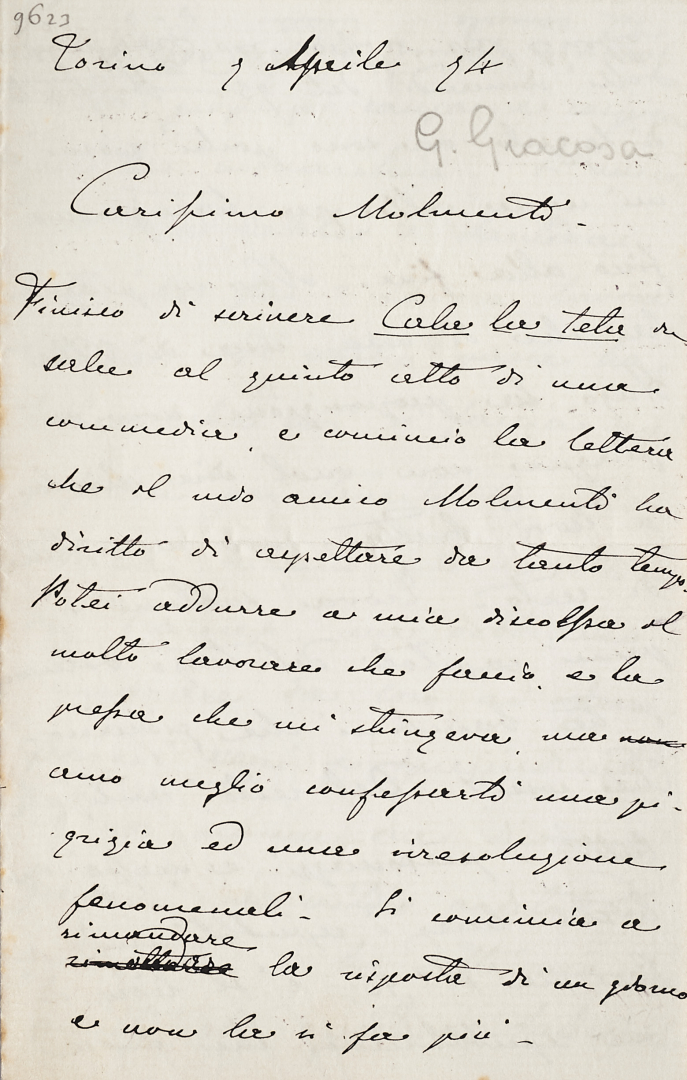 9623
Torino 9 Aprile 74
G. Giacosa
Carissimo Molmenti -
Finisco di scrivere Cala la tela in
calce al quinto atto di una
commedia, e comincio la lettera
che il mio amico Molmenti ha
diritto di aspettare da tanto tempo.
Potei addurre a mia discolpa il
molto lavorare che faccio, e la
pressa che mi stringeva, ma non
amo meglio confessarti una pi-
grizia ed una irresoluzione
fenomenali - Si comincia a
rimandare
la risposta di un giorno
e non la si fa più -